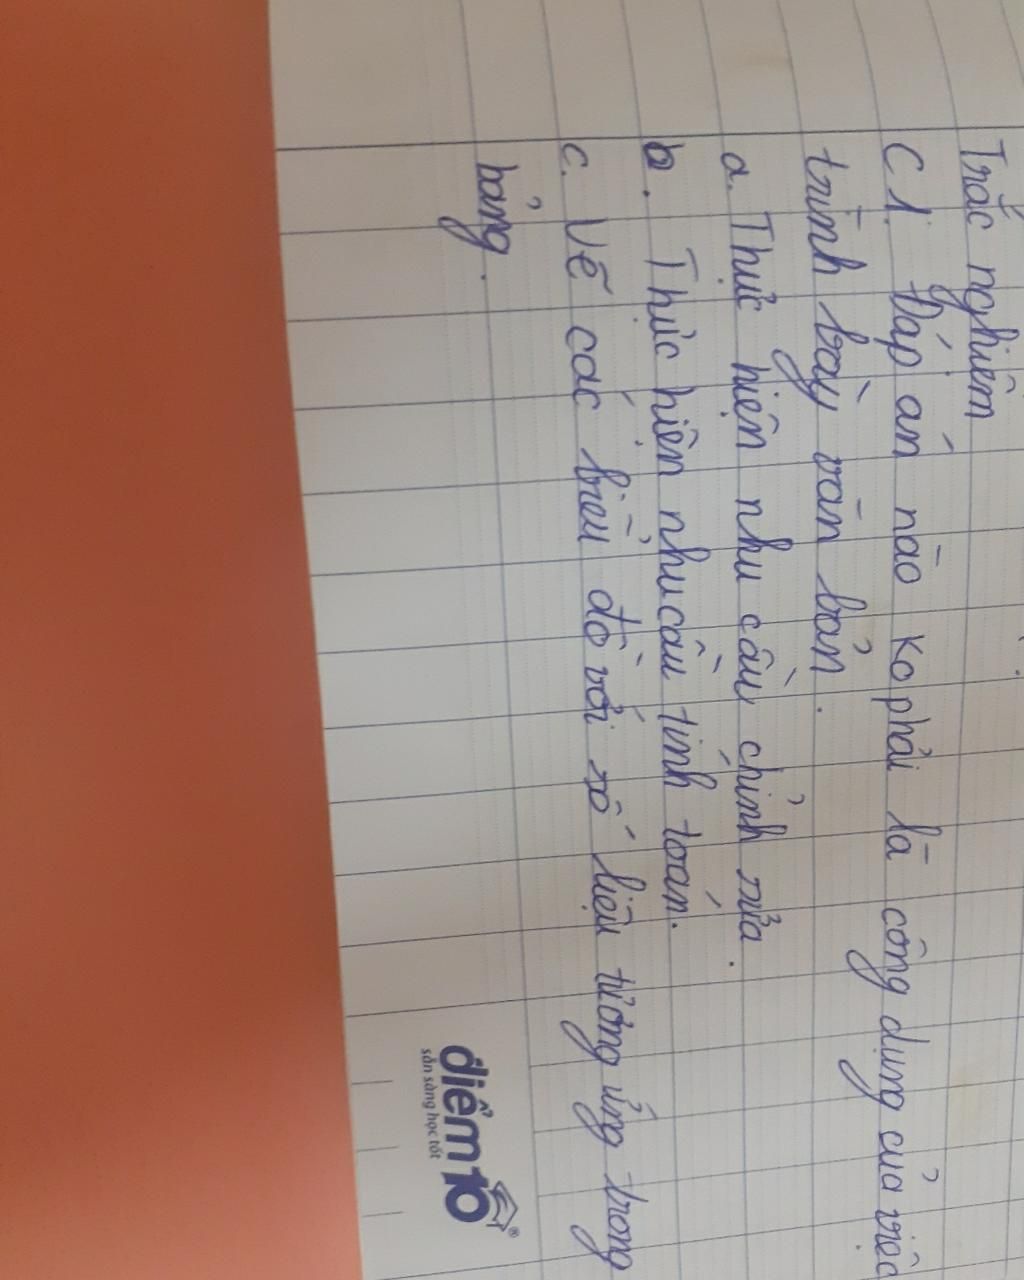 Trắc nghiêm
C1. Đáp án nào ko phải là công dụng của việc
trình bày văn bản.
a. Thực hiện nhu cầu chỉnh sửa.
b. Thực hiên nhu cầu tính toán.
c. Vẽ các biểu đồ với số liệu tương ứng trong
bảng.
điểm10
sẵn sàng học tốt